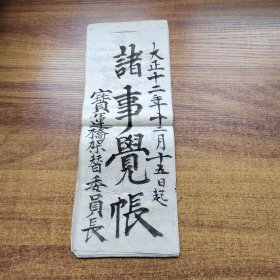 大正十二年十二月十五日起
諸事覺帳
寳蓮橋保替委員長